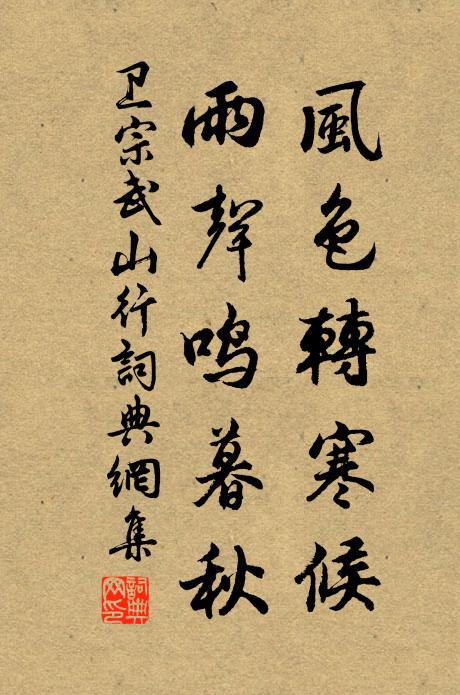 風色轉寒候
雨聲鳴暮秋
卫宗武山行詞典網集
詞典网印